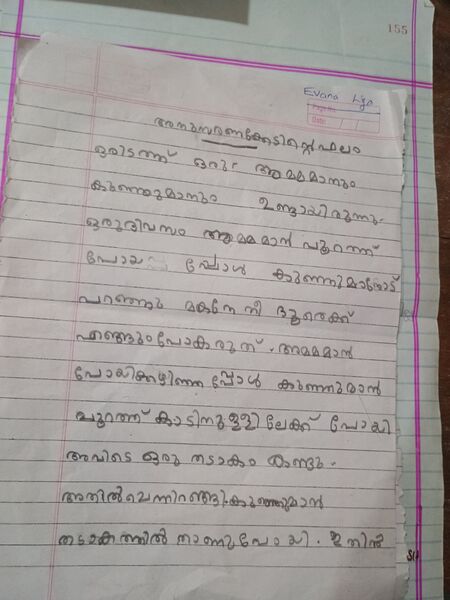 155
Evana Liju
Page No.
Date:
അനുസരണക്കേടിന്റെ ഫലം
ഒരിടത്ത് ഒരു അമ്മമാനും
കുഞ്ഞുമാനും ഉണ്ടായിരുന്നു.
ഒരുദിവസം അമ്മമാൻ പുറത്ത്
പോയപ്പോൾ കുഞ്ഞുമാനോട്
പറഞ്ഞു മകനേ നീ ദൂരേക്ക്
എങ്ങും പോകരുത്. അമ്മമാൻ
പോയിക്കഴിഞ്ഞപ്പോൾ കുഞ്ഞുമാൻ
പുറത്ത് കാടിനുള്ളിലേക്ക് പോയി
അവിടെ ഒരു തടാകം കണ്ടു.
അതിൽ ചെന്നിറങ്ങി. കുഞ്ഞുമാൻ
തടാകത്തിൽ താണുപോയി. ഇതിൽ